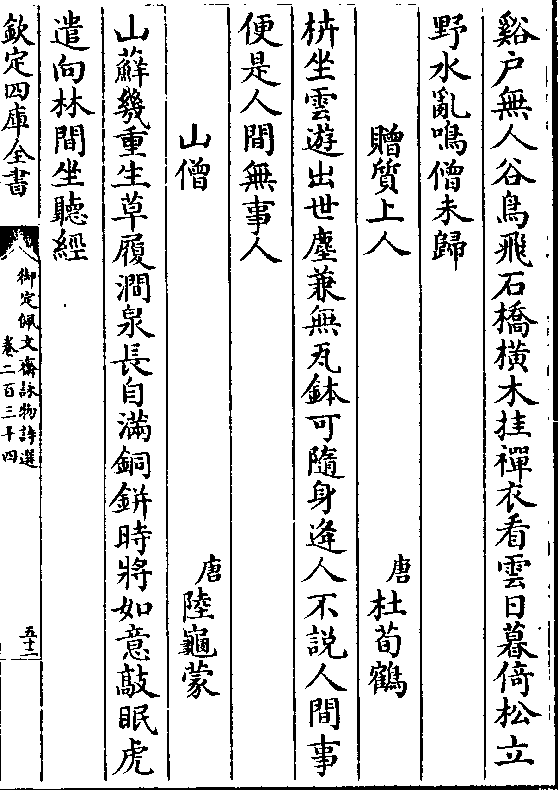 谿户無人谷鳥飛石橋橫木挂禪衣看雲日暮倚松立
野水亂鳴僧未歸
贈質上人
唐杜荀鶴
枿坐雲遊出世塵兼無瓦鉢可隨身逢人不說人間事
便是人間無事人
山僧
唐陸龜蒙
山蘚幾重生草履澗泉長自滿銅缾時將如意敲眠虎
遣向林間坐聽經
欽定四庫全書
御定佩文齋詠物詩選
卷二百三十四
五十二